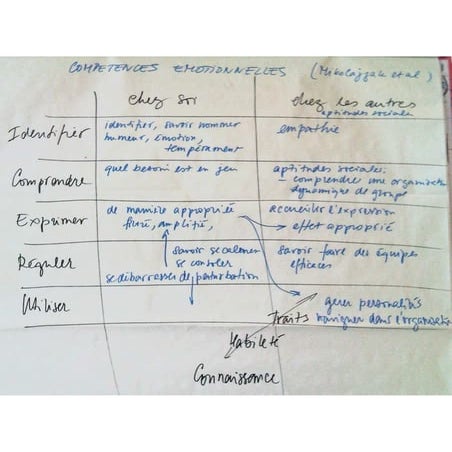 COMPETENCES EMOTIONNELLES (Mikolajzak et al)
chez soi
chez les autres
aptitudes sociales
Identifier
identifier, savoir nommer
humeur, émotion,
tempérament
empathie
Comprendre
quel besoin est en jeu
aptitudes sociales:
- comprendre une organisation
dynamique de groupe
Exprimer
de manière appropriée
amplitude,
accueillir l'expression
effet approprié
Réguler
savoir se calmer
se consoler
se débarrasser de perturbation
savoir faire des équipes
efficaces
Utiliser
gérer personalités
naviguer dans l'organisation
Traits
Habileté
Connaissance